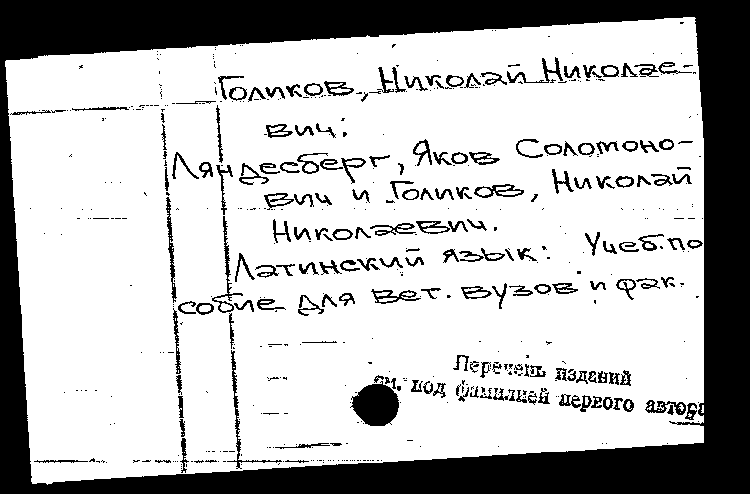 Голиков, Николай Николае-
вич:
Ляндесберг, Яков Соломоно-
вич и Голиков, Николай
Николаевич.
Латинский язык: Учеб. по
собие для вет. вузов и фак.
Перечень изданий
см. под фамилией первого автора